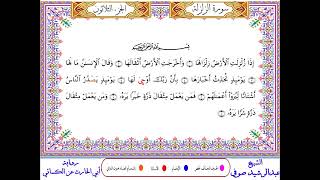 سورة الزلزلة
الجزء الثلاثون
بسم الله الرحمن الرحيم
إِذَا زُلْزِلَتِ الْأَرْضُ زِلْزَالَهَا ۝ وَأَخْرَجَتِ الْأَرْضُ أَثْقَالَهَا ۝ وَقَالَ الْإِنسَٰنُ مَا لَهَا
۝ يَوْمَئِذٍ تُحَدِّثُ أَخْبَارَهَا ۝ بِأَنَّ رَبَّكَ أَوْحَىٰ لَهَا ۝ يَوْمَئِذٍ يَصْدُرُ النَّاسُ
أَشْتَاتًا لِّيُرَوْا أَعْمَٰلَهُمْ ۝ فَمَن يَعْمَلْ مِثْقَالَ ذَرَّةٍ خَيْرًا يَرَهُ ۝ وَمَن يَعْمَلْ مِثْقَالَ
ذَرَّةٍ شَرًّا يَرَهُ ۝
الشيخ
عبدالرشيد صوفي
برواية
أبي الحارث عن الكسائي